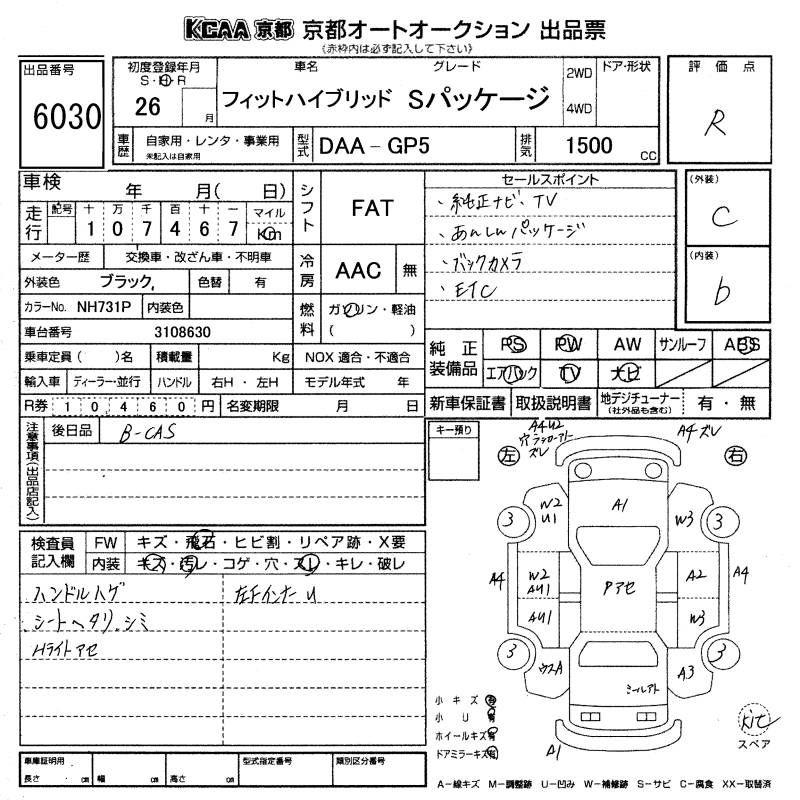 KCAA 京都 京都オートオークション 出品票
(赤枠内は必ず記入して下さい)
出品番号
6030
初度登録年月
S・H・R
26 月
車名 グレード
フィットハイブリッド Sパッケージ
2WD
4WD
ドア・形状
評価点
R
車歴
自家用・レンタ・事業用
未記入は自家用
型式
DAA-GP5
排気
1500 CC
車検 年 月( 日)
走行
記号 十 万 千 百 十 一 マイル
1 0 7 4 6 7 Km
メーター歴 交換車・改ざん車・不明車
外装色 ブラック, 色替 有
カラーNo. NH731P 内装色
車台番号 3108630
乗車定員( )名 積載量 Kg
輸入車 ディーラー・並行 ハンドル 右H・左H
R券 1 0,4 6 0 円 名変期限 月 日
シフト
FAT
冷房
AAC 無
燃料
ガソリン・軽油
( )
NOX 適合・不適合
モデル年式 年
セールスポイント
・純正ナビ、TV
・あんしんパッケージ
・バックカメラ
・ETC
(外装)
C
(内装)
b
純正装備品
PS PW AW サンルーフ ABS
エアバック TV ナビ
新車保証書 取扱説明書 地デジチューナー
(社外品も含む)
有・無
注意事項(出品店記入)
後日品 B-CAS
検査員記入欄
FW キズ・飛石・ヒビ割・リペア跡・X要
内装 キズ・汚レ・コゲ・穴・スレ・キレ・破レ
ハンドルハゲ
・シートヘタリ、シミ
Hライトアセ
左Fインナー U
キー預り
左
右
A4 U2
ズレ
A4 ズレ
3
3
W2
U1
A1
W3
A4
W2
AU1
AU1
Pアセ
A2
W3
A4
3
3
ウスA
A3
A1
kit
スペア
小キズ 有
小U 有
ホイールキズ 有
ドアミラーキズ 有
車庫証明用
長さ cm 幅 cm 高さ cm
型式指定番号
類別区分番号
A-線キズ M-調整跡 U-凹み W-補修跡 S-サビ C-腐食 XX-取替済